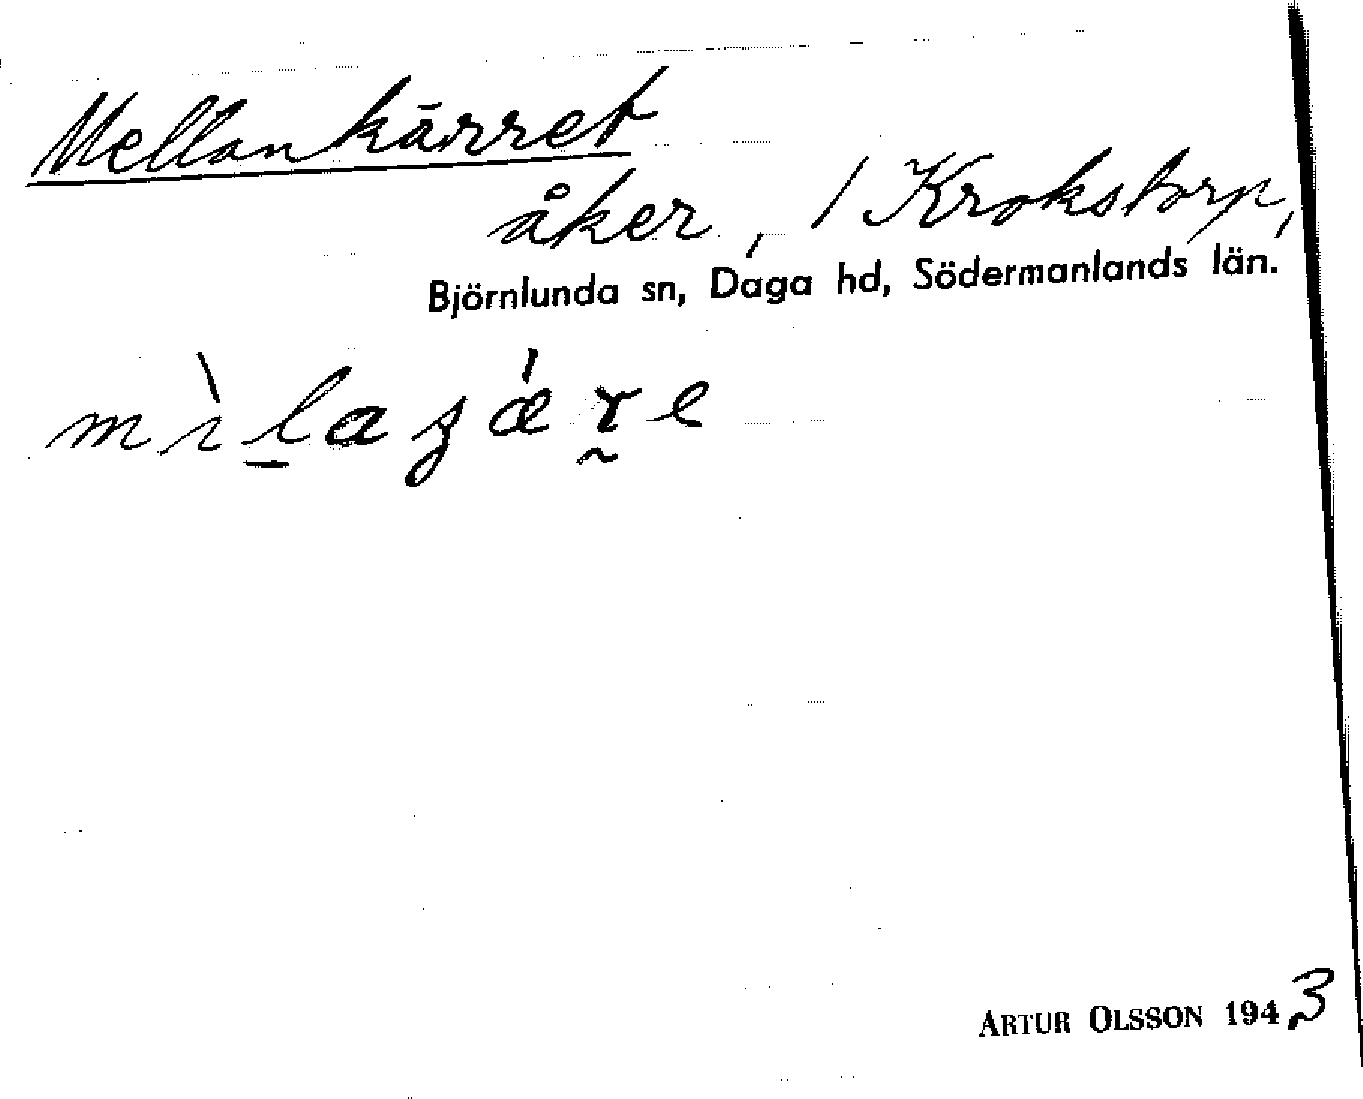 Mellankärret
åker, / Krokstorp,
Björnlunda sn, Daga hd, Södermanlands län.
ARTUR OLSSON 1943